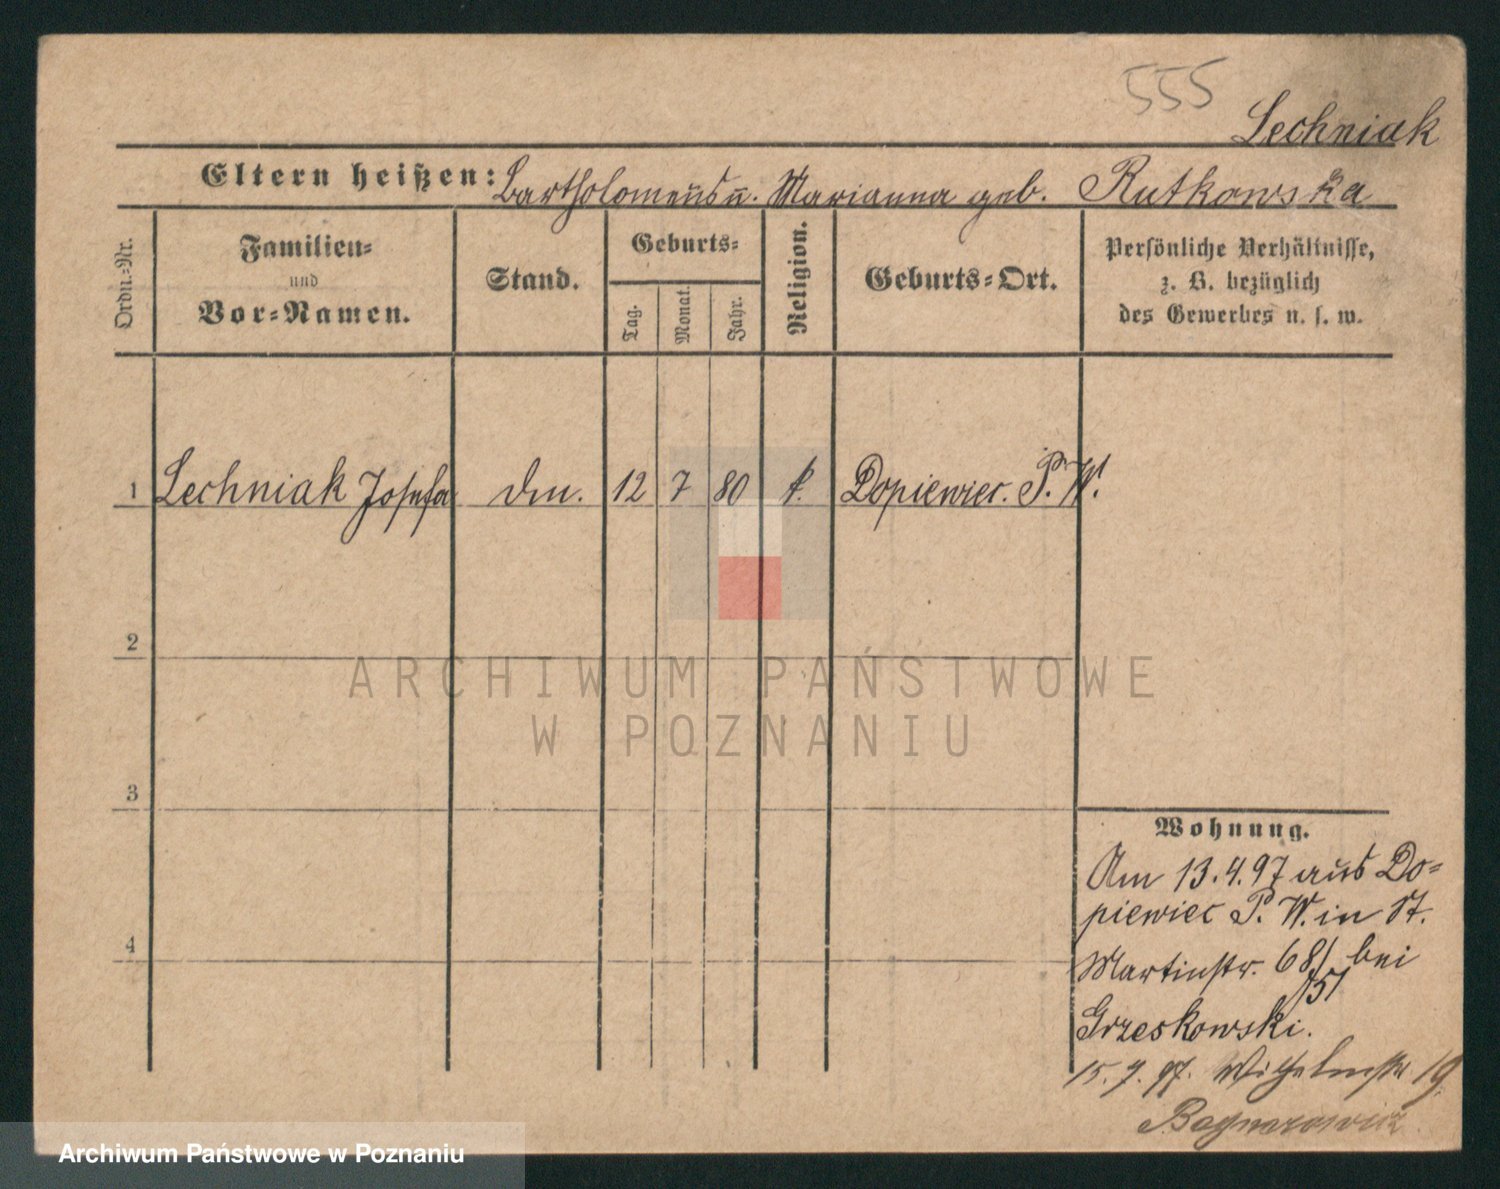 555
Lechniak
Eltern heißen: Bartholomeus u. Marianna geb. Rutkowska
Ordn.-Nr.
Familien-
und
Vor-Namen.
Stand.
Geburts-
Tag.
Monat.
Jahr.
Religion.
Geburts-Ort.
Persönliche Verhältnisse,
z. B. bezüglich
des Gewerbes u. s. w.
1 Lechniak Josefa 12 7 80 k. Dopiewiec. P. W.
2
3
4
ARCHIWUM PAŃSTWOWE
W POZNANIU
Wohnung.
Am 13.4.97 aus Do-
piewiec P. W. in St.
Martinstr. 68/ bei
Grzeskowski.
15. 7. 97. Wilhelmstr. 19
Archiwum Państwowe w Poznaniu